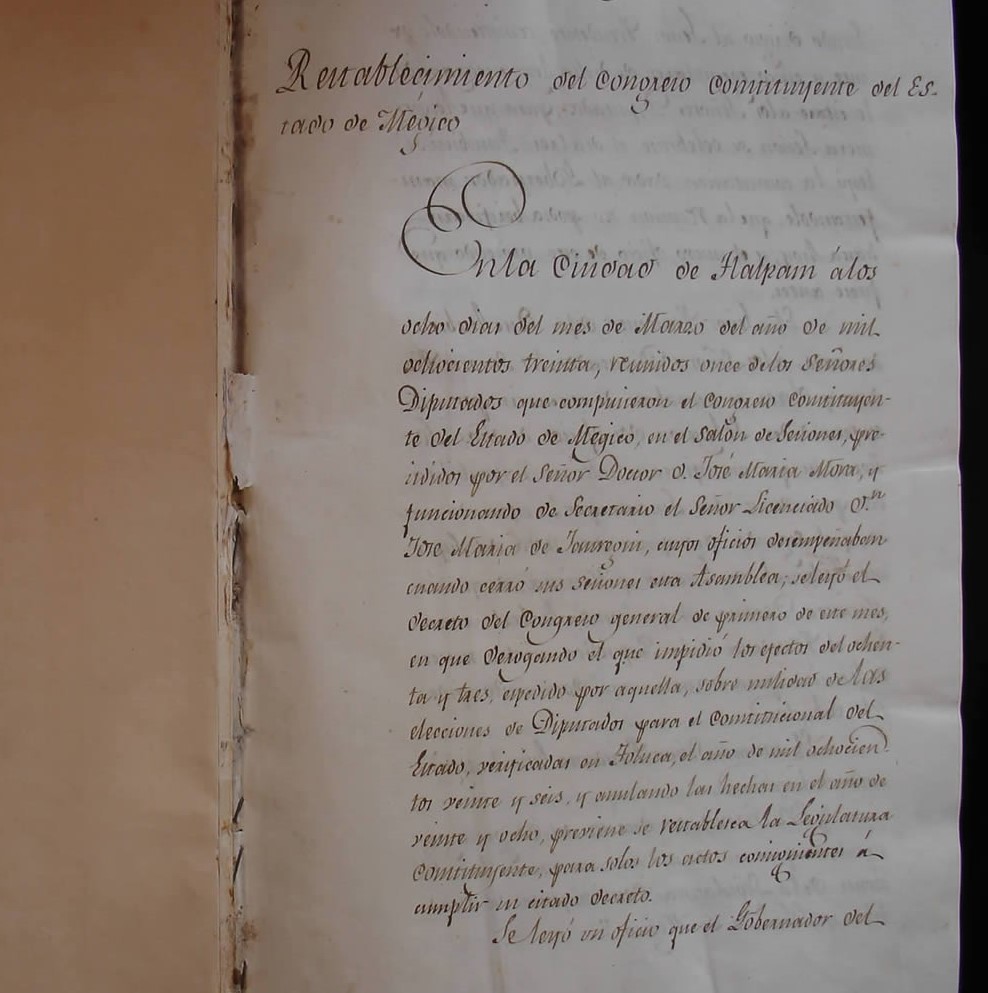 Restablecimiento del Congreso Constituyente del Es-
tado de Mégico
En la Ciudad de Tlalpam á los
ocho dias del mes de Marzo del año de mil
ochocientos treinta, reunidos once de los Señores
Diputados que compusieron el Congreso Constituyen-
te del Estado de Megico, en el salón de Sesiones, pre-
sididos por el Señor Doctor D. José Maria Mora, y
funcionando de Secretario el Señor Licenciado D.n
José Maria de Jauregui, cuyos oficios desempeñaban
cuando cerró sus sesiones esta Asamblea; se leyó el
decreto del Congreso general de primero de este mes,
en que derogando el que impidió los efectos del ochen-
ta y tres, espedido por aquella, sobre nulidad de las
elecciones de Diputados para el Constitucional del
Estado, verificadas en Toluca, el año de mil ochocien-
tos veinte y seis, y anulando las hechas en el año de
veinte y ocho, previene se restablesca la Legislatura
Constituyente, para solos los actos consiguientes á
cumplir su citado decreto.
Se leyó un oficio que el Gobernador del